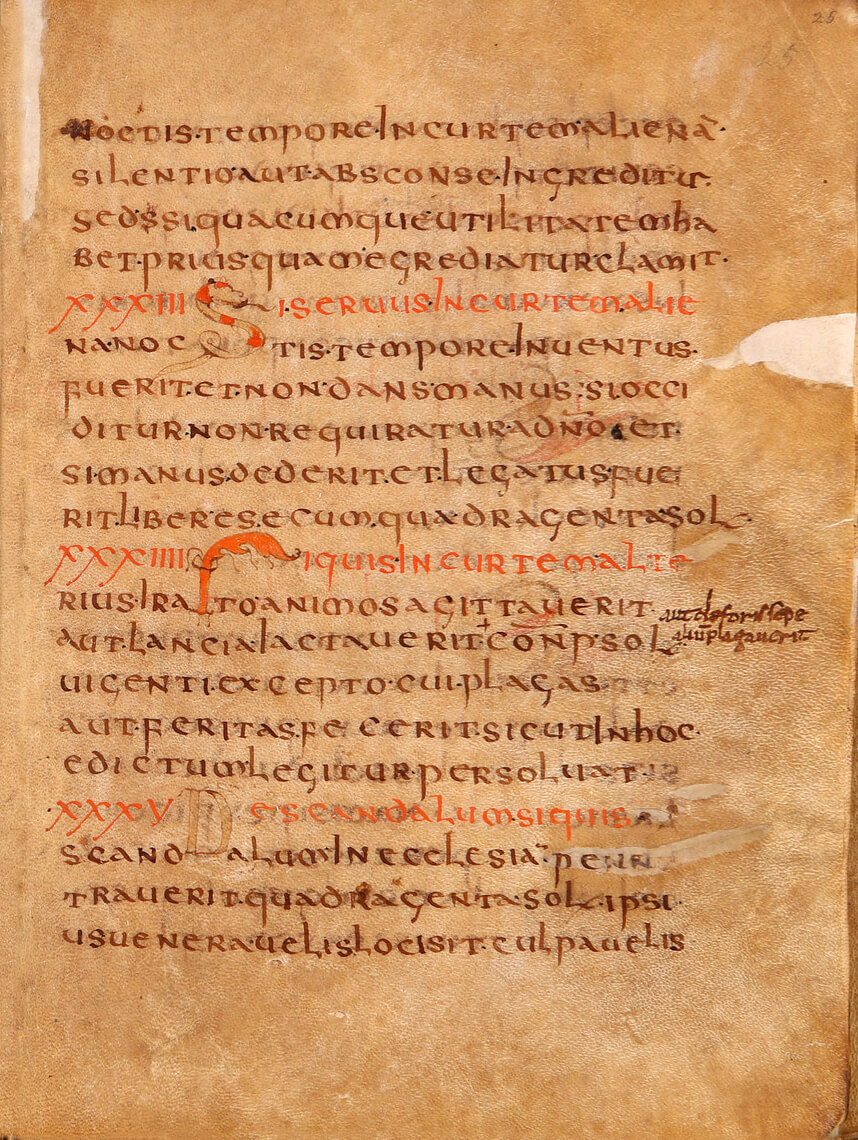 25
25
NOCTIS·TEMPORE·INCURTEMALIENA·
SILENTIOAUTABSCONSEINGREDITUR·
SEDSSIQUACUMQUEUTILITATEMHA
BET·PRIUSQUAMEGREDIATURCLAMIT·
XXXIII SISERUUSINCURTEMALIE
NANOCTIS·TEMPORE·INUENTUS·
FUERIT·ET·NON·DANSMANUS:SIOCCI
DITUR·NON·REQUIRATUR·AD ET·
SIMANUS·DEDERIT·ET·LEGATUSFUE
RIT·LIBERESE·CUM·QUADRAGENTASOL·
XXXIIII SIQUISINCURTEMALTE
RIUS·IRATOANIMOSAGITTAUERIT aut deforis sepe
AUT·LANCIAIACTAUERIT·CONPSOL aliu plagauerit
UIGENTI·EXCEPTO·CUI·PLAGAS·
AUT·FERITASFECERIT·SICUTINHOC·
EDICTUMLEGITUR·PERSOLUAT·
XXXV DESCANDALUM·SIQUIS
SCANDALUMINECCLESIA·PENN
TRAUERIT·QUADRAGENTA·SOL·IPSI·
USUENERAUELISLOCISIT·CULPAUELIS